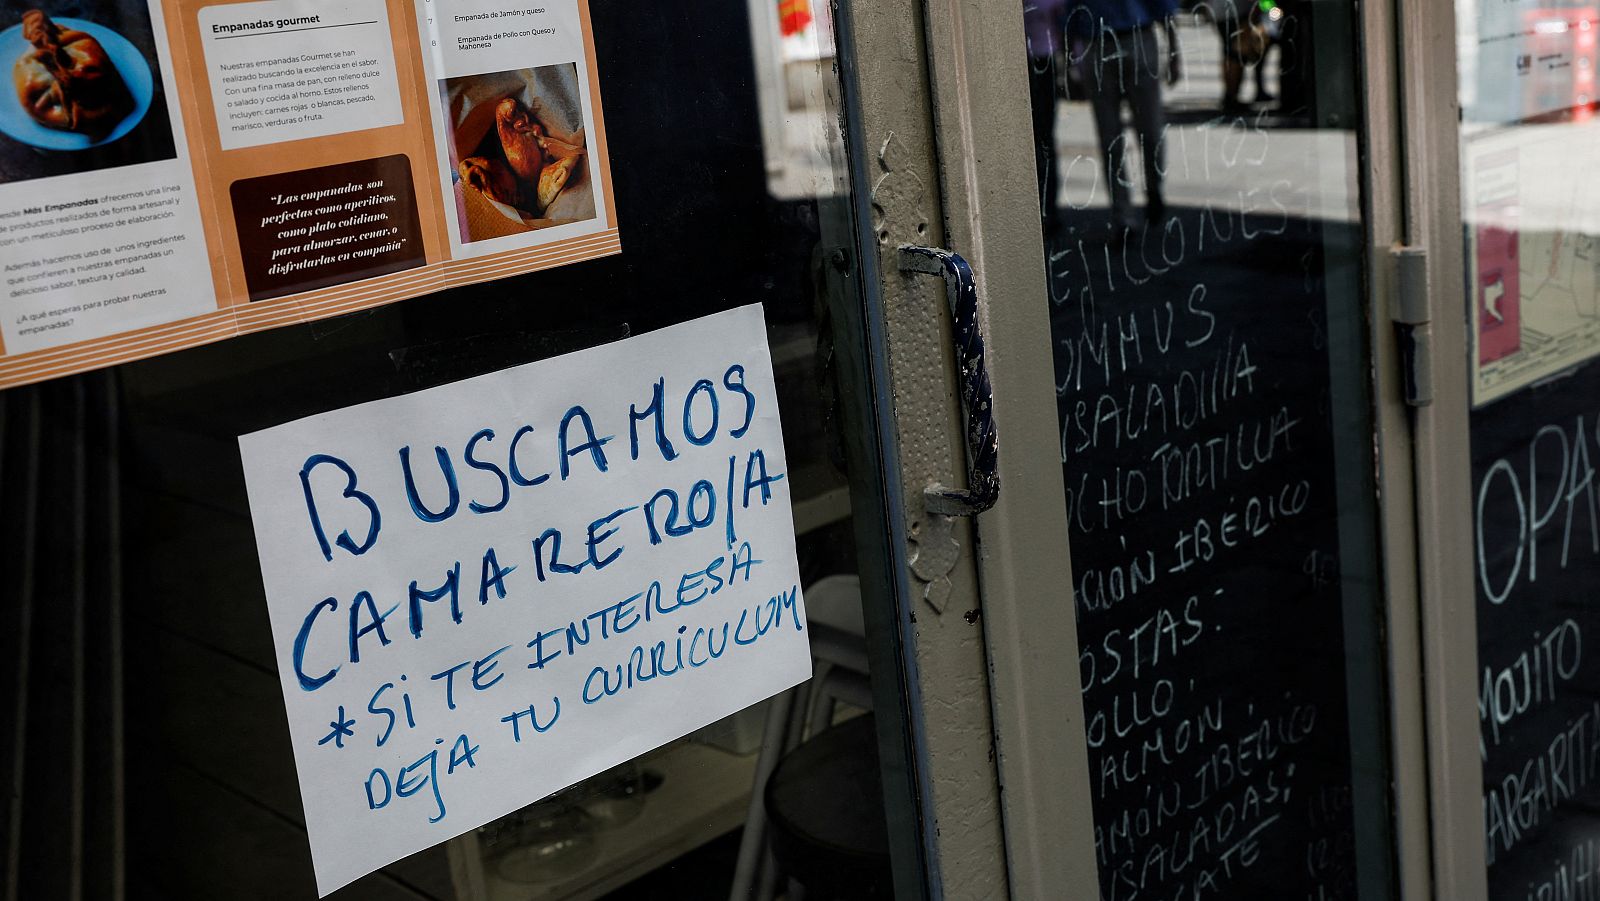 Empanadas gourmet
Nuestras empanadas Gourmet se han
realizado buscando la excelencia en el sabor.
Con una fina masa de pan, con relleno dulce
o salado y cocida al horno. Estos rellenos
incluyen: carnes rojas o blancas, pescado,
marisco, verduras o fruta.
"Las empanadas son
perfectas como aperitivos,
como plato cotidiano,
para almorzar, cenar, o
disfrutarlas en compañía"
7 Empanada de Jamón y queso
8 Empanada de Pollo con Queso y
Mahonesa
desde Más Empanadas ofrecemos una línea
de productos realizados de forma artesanal y
con un meticuloso proceso de elaboración.
Además hacemos uso de unos ingredientes
que confieren a nuestras empanadas un
delicioso sabor, textura y calidad.
¿A qué esperas para probar nuestras
empanadas?
BUSCAMOS
CAMARERO/A
*Si TE INTERESA
DEJA TU CURRiCULUM
PANADAS
MORCITOS
EJILLONES
OMMUS
NSALADILLA
CHO TORTILLA
CIÓN IBÉRICO
OSTAS:
OLLO.
ALMÓN.
AMÓN IBÉRICO
NSALADAS:
COPAS
MOJITO
MARGARITA